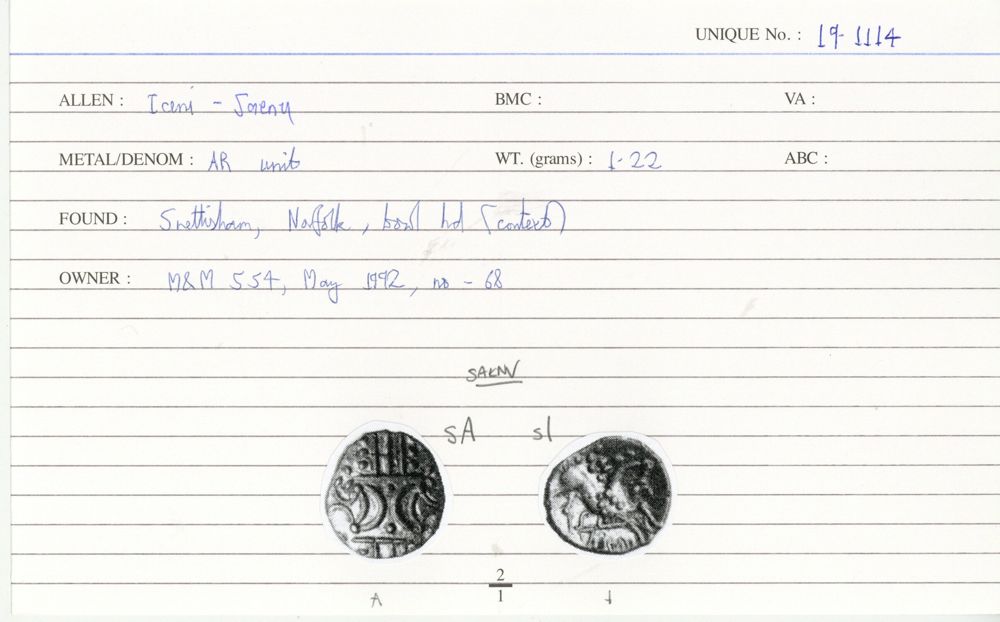 UNIQUE No. : 19-1114
ALLEN : Iceni - Saenu BMC : VA :
METAL/DENOM : AR unit WT. (grams) : 1.22 ABC :
FOUND : Snettisham, Norfolk, bowl hd (context)
OWNER : M&M 554, May 1992, no - 68
SA sl
2
1
A